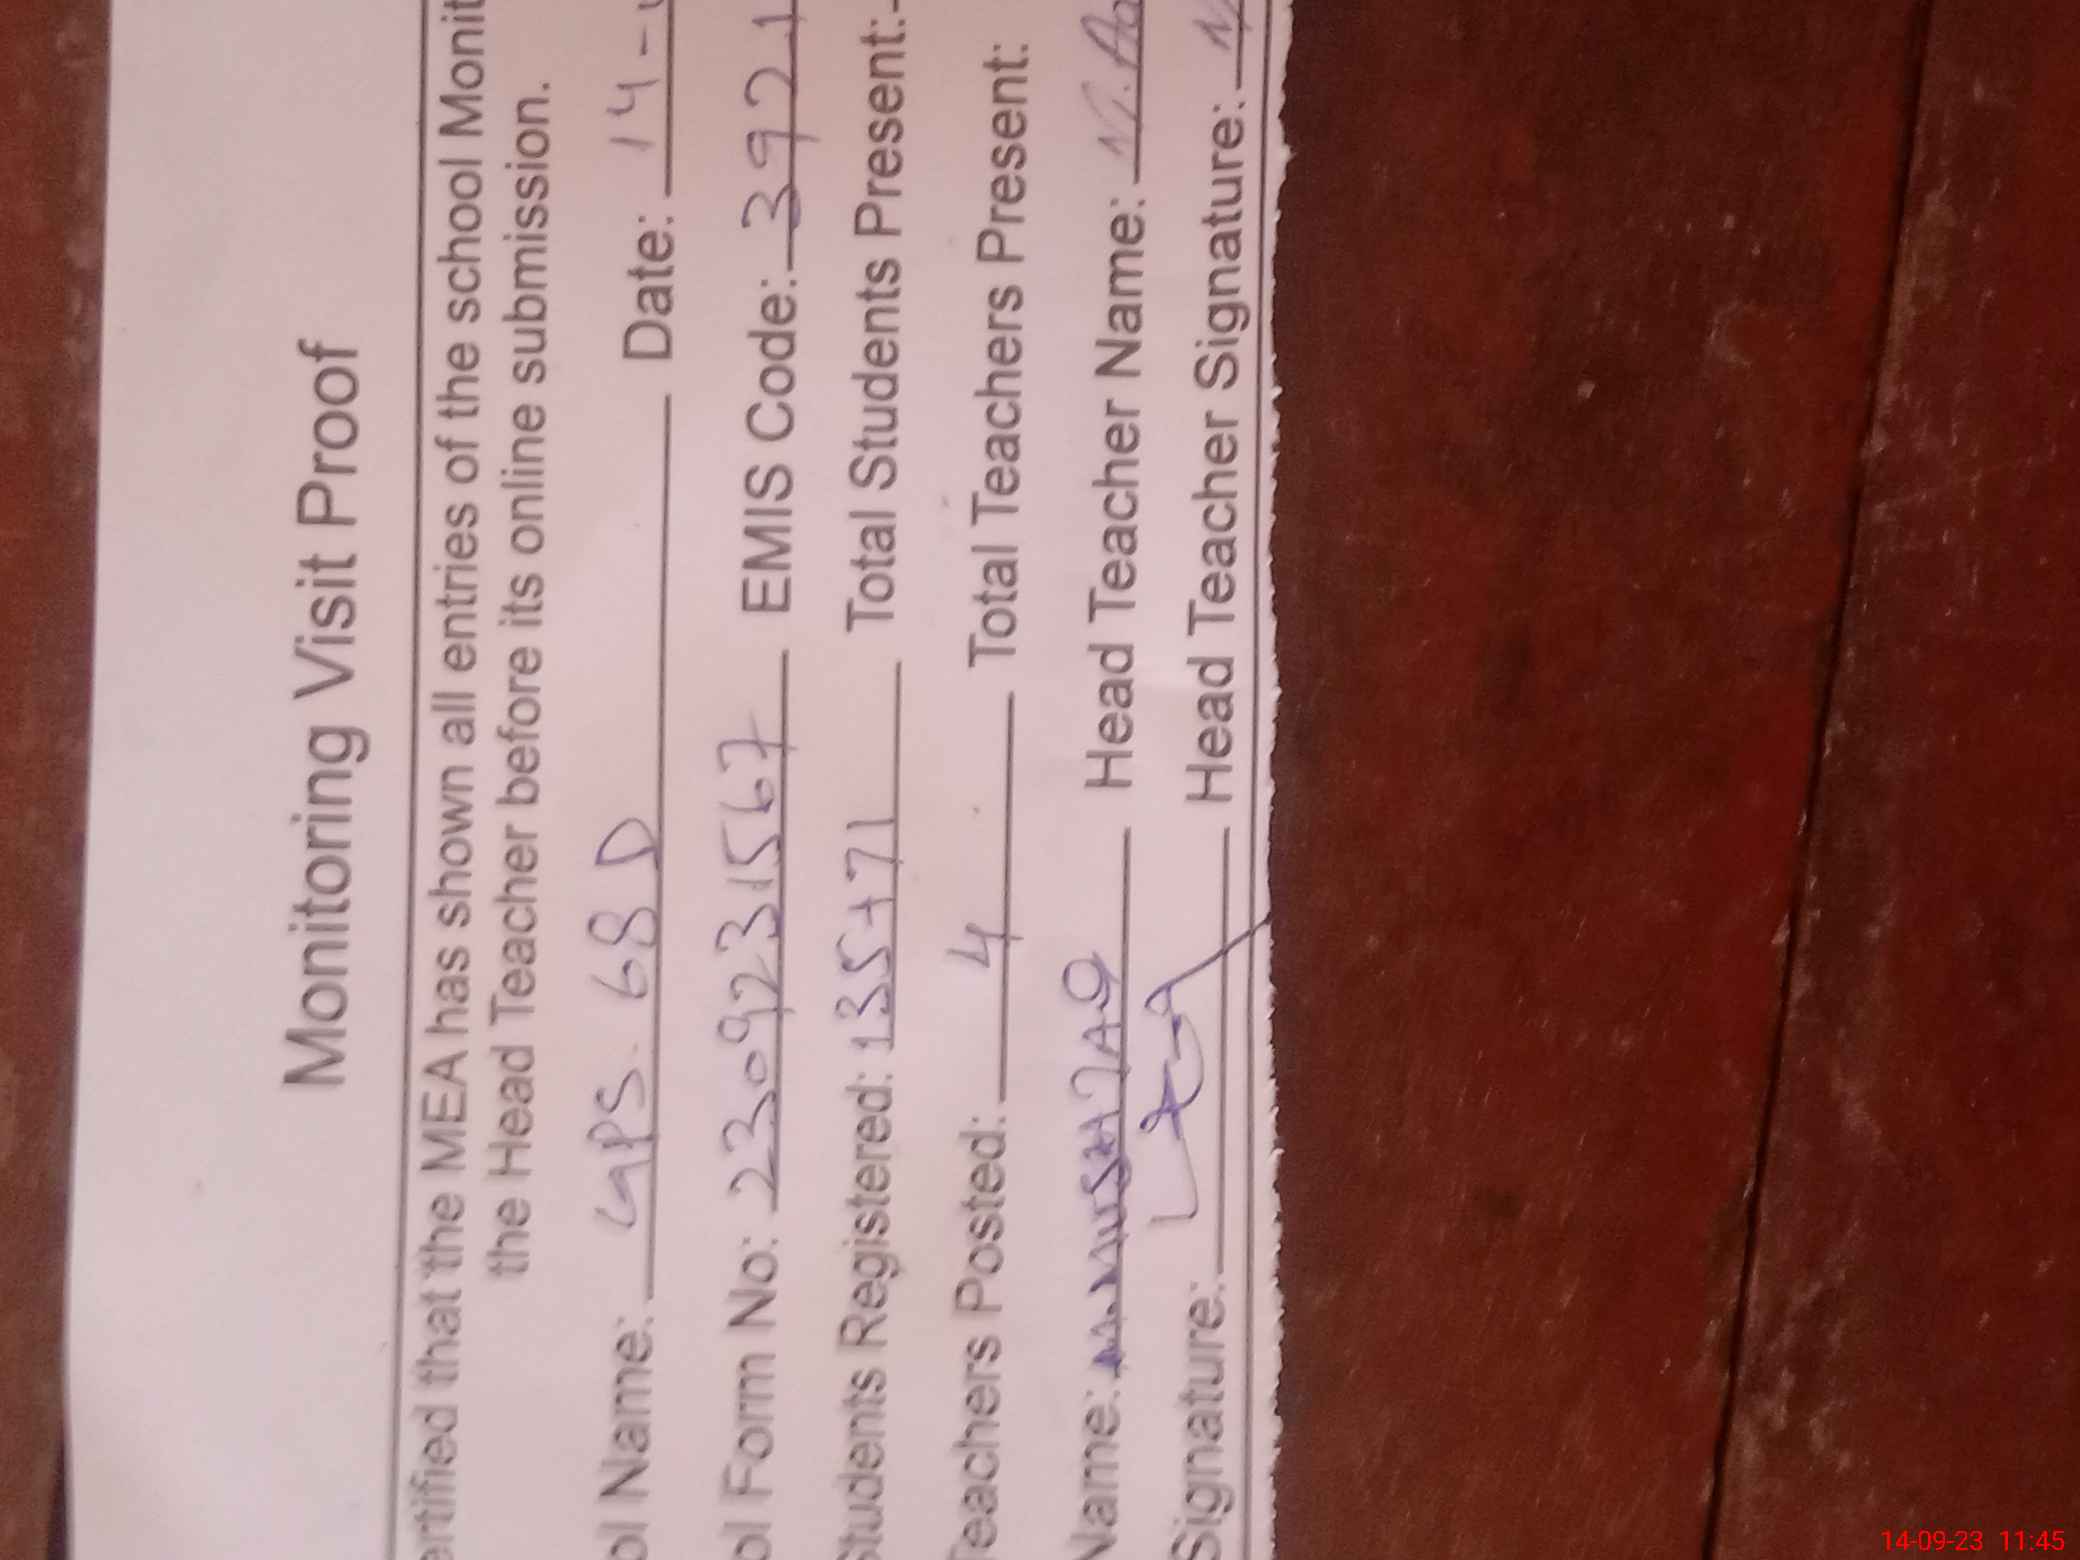 Monitoring Visit Proof
ertified that the MEA has shown all entries of the school Monit
the Head Teacher before its online submission.
ol Name: GPS. 68 D Date: 14-
ol Form No: 2309231567 EMIS Code: 3921
Students Registered: 135+71 Total Students Present:-
Teachers Posted: 4 Total Teachers Present:
Name: Head Teacher Name:
Signature: Head Teacher Signature:
14-09-23 11:45